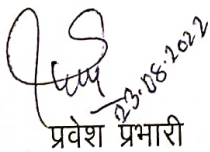 23.08.2022
प्रवेश प्रभारी